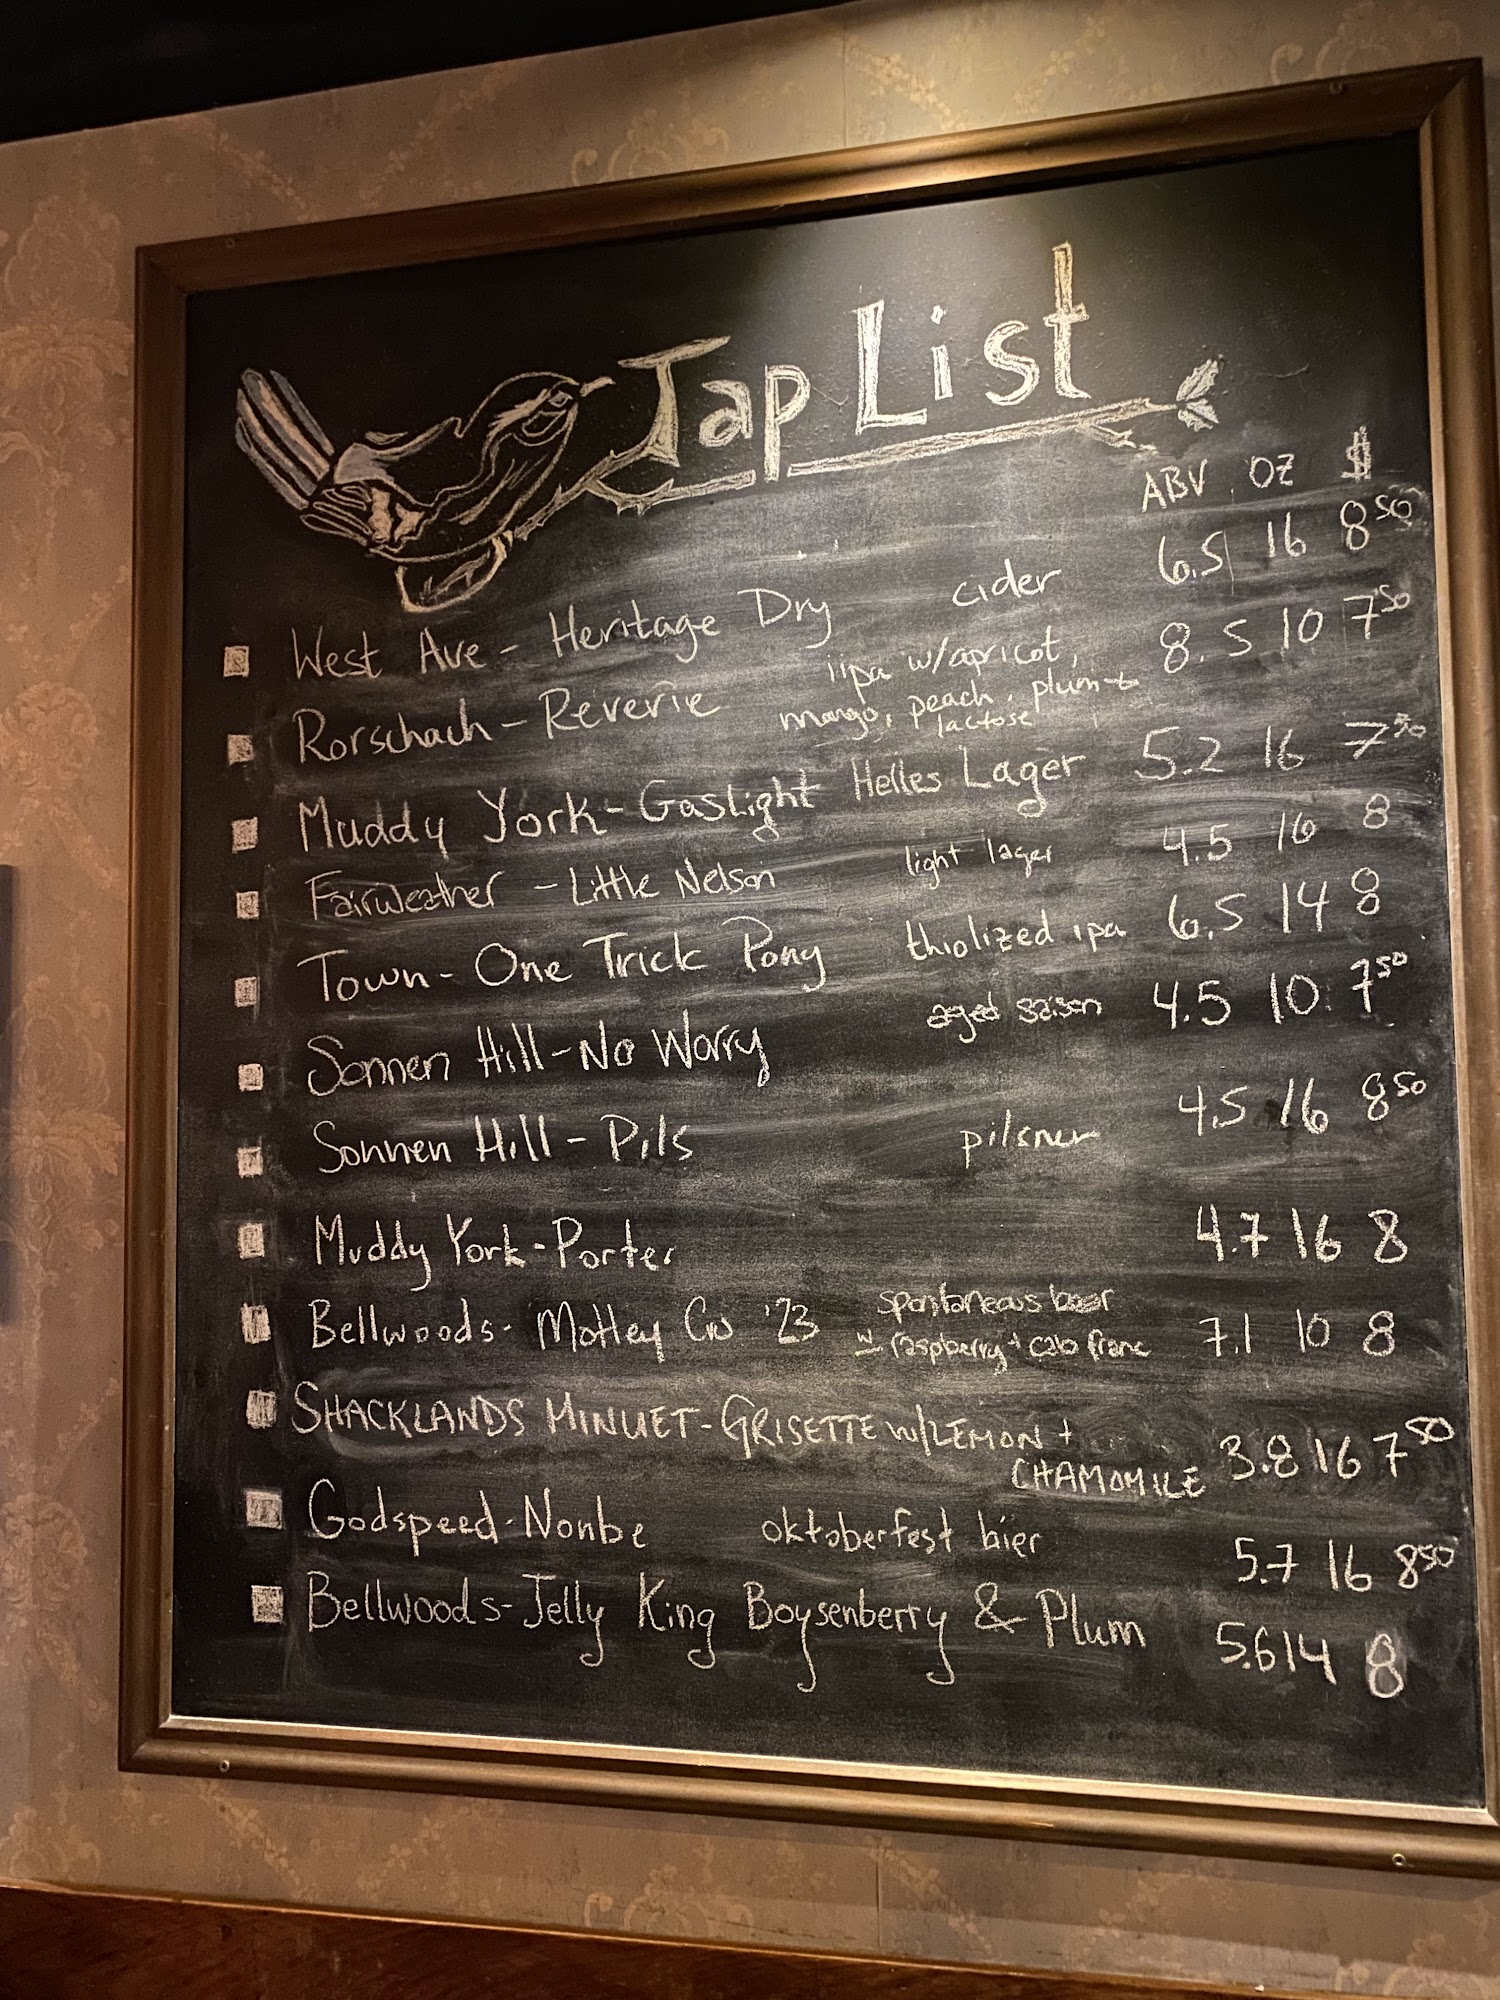 Tap List
ABV OZ $
West Ave - Heritage Dry cider 6.5 16 8 50
Rorschach - Reverie iipa w/apricot, mango, peach, plum + lactose 8.5 10 7 50
Muddy York - Gaslight Helles Lager 5.2 16 7 50
Fairweather - Little Nelson light lager 4.5 16 8
Town - One Trick Pony thiolized ipa 6.5 14 8
Sonnen Hill - No Worry aged saison 4.5 10 7 50
Sonnen Hill - Pils pilsner 4.5 16 8 50
Muddy York - Porter 4.7 16 8
Bellwoods - Motley Cru '23 spontaneous beer w raspberry + cab franc 7.1 10 8
SHACKLANDS MINUET - GRISETTE w/LEMON +
CHAMOMILE 3.8 16 7 50
Godspeed - Nonbe oktoberfest bier 5.7 16 8 50
Bellwoods - Jelly King Boysenberry & Plum 5.6 14 8